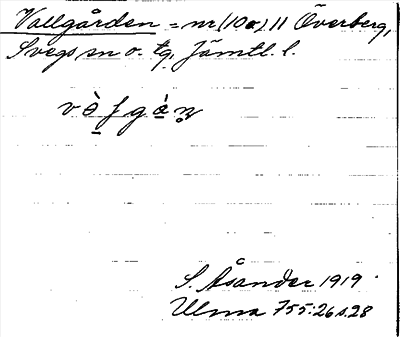 Vallgården = nr (10a) 11 Överberg,
Svegs sn o. tg, Jämtl. l.
vàfgàn
S. Åsander 1919
Ulma 755:26 s.28